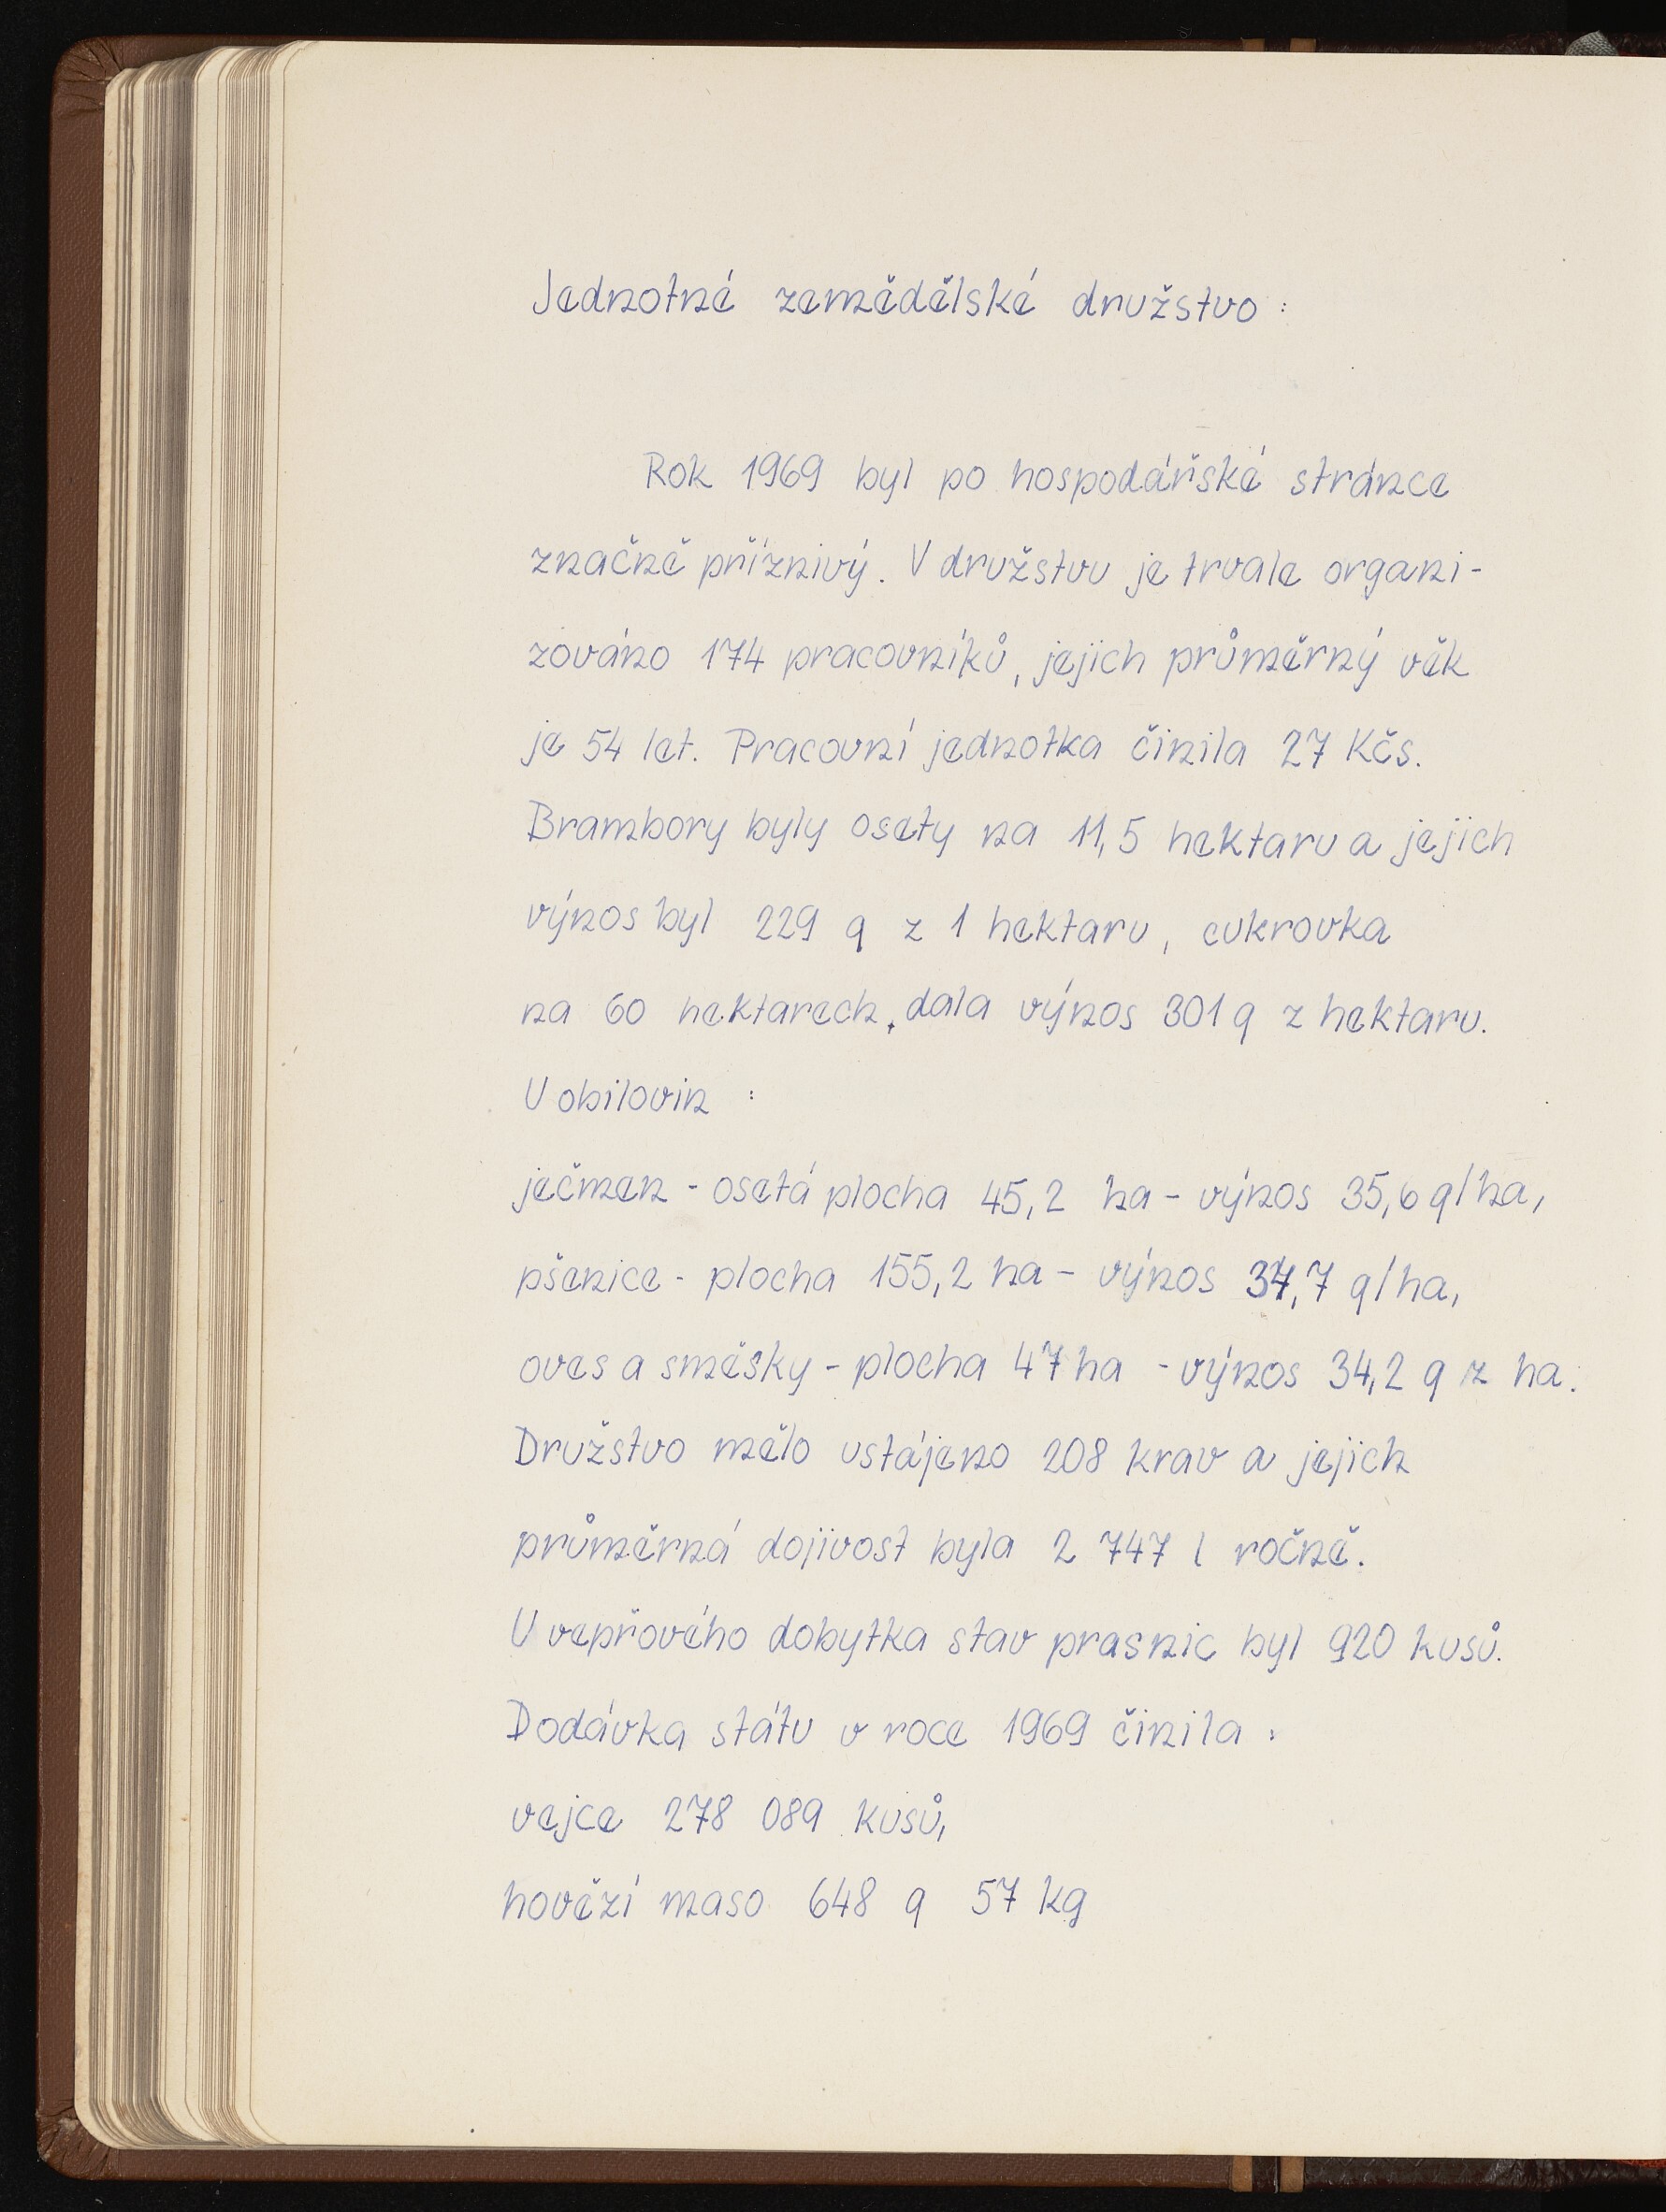 Jednotné zemědělské družstvo :
Rok 1969 byl po hospodářské stránce
značně příznivý. V družstvu je trvale organi-
zováno 174 pracovníků, jejich průměrný věk
je 54 let. Pracovní jednotka činila 27 Kčs.
Brambory byly osety na 11,5 hektaru a jejich
výnos byl 229 q z 1 hektaru, cukrovka
na 60 hektarech, dala výnos 301 q z hektaru.
U obilovin :
ječmen - osetá plocha 45,2 ha - výnos 35,6 q/ha,
pšenice - plocha 155,2 ha - výnos 34,7 q/ha,
oves a směsky - plocha 47 ha - výnos 34,2 q z ha.
Družstvo mělo ustájeno 208 krav a jejich
průměrná dojivost byla 2 747 l ročně.
U vepřového dobytka stav prasnic byl 920 kusů.
Dodávka státu v roce 1969 činila :
vejce 278 089 kusů,
hovězí maso 648 q 57 kg